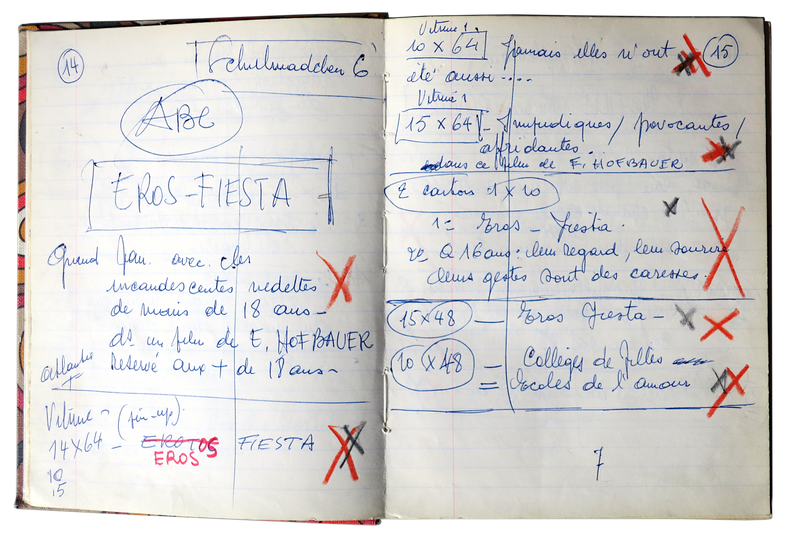 14
Schulmadchen 6
ABC
EROS-FIESTA
Quand avec des
incandescentes vedettes
de moins de 18 ans -
ds un film de E. HOFBAUER
Reservé aux + de 18 ans -
atlantic
Vitrine - (pin-up).
14x64 - EROTOS FIESTA
EROS
10
15
Vitrine 1.
10 x 64 Jamais elles n'ont 15
été aussi ....
Vitrine 1
15 x 64 - Impudiques / provocantes /
affriolantes..
dans ce film de E. HOFBAUER
2 cartons 1 x 10
1= Eros - Fiestia.
2= A 16 ans : leur regard, leur sourire
leurs gestes sont des caresses.
15x48 - Eros Fiesta -
10 x 48 - Collèges de filles
= Ecoles de l'amour
7